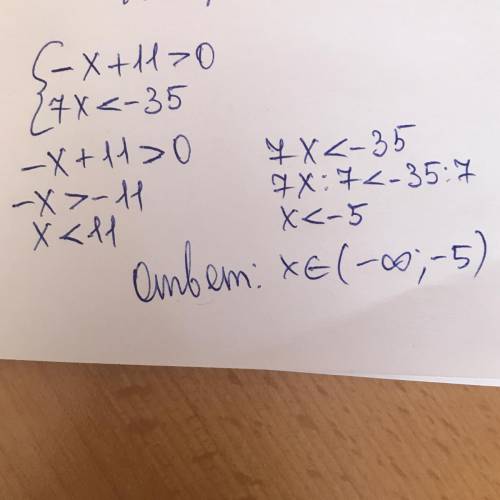 {-x+11>0
7x<-35
-x+11>0
-x>-11
x<11
7x<-35
7x:7<-35:7
x<-5
Ответ: x∈(-∞;-5)